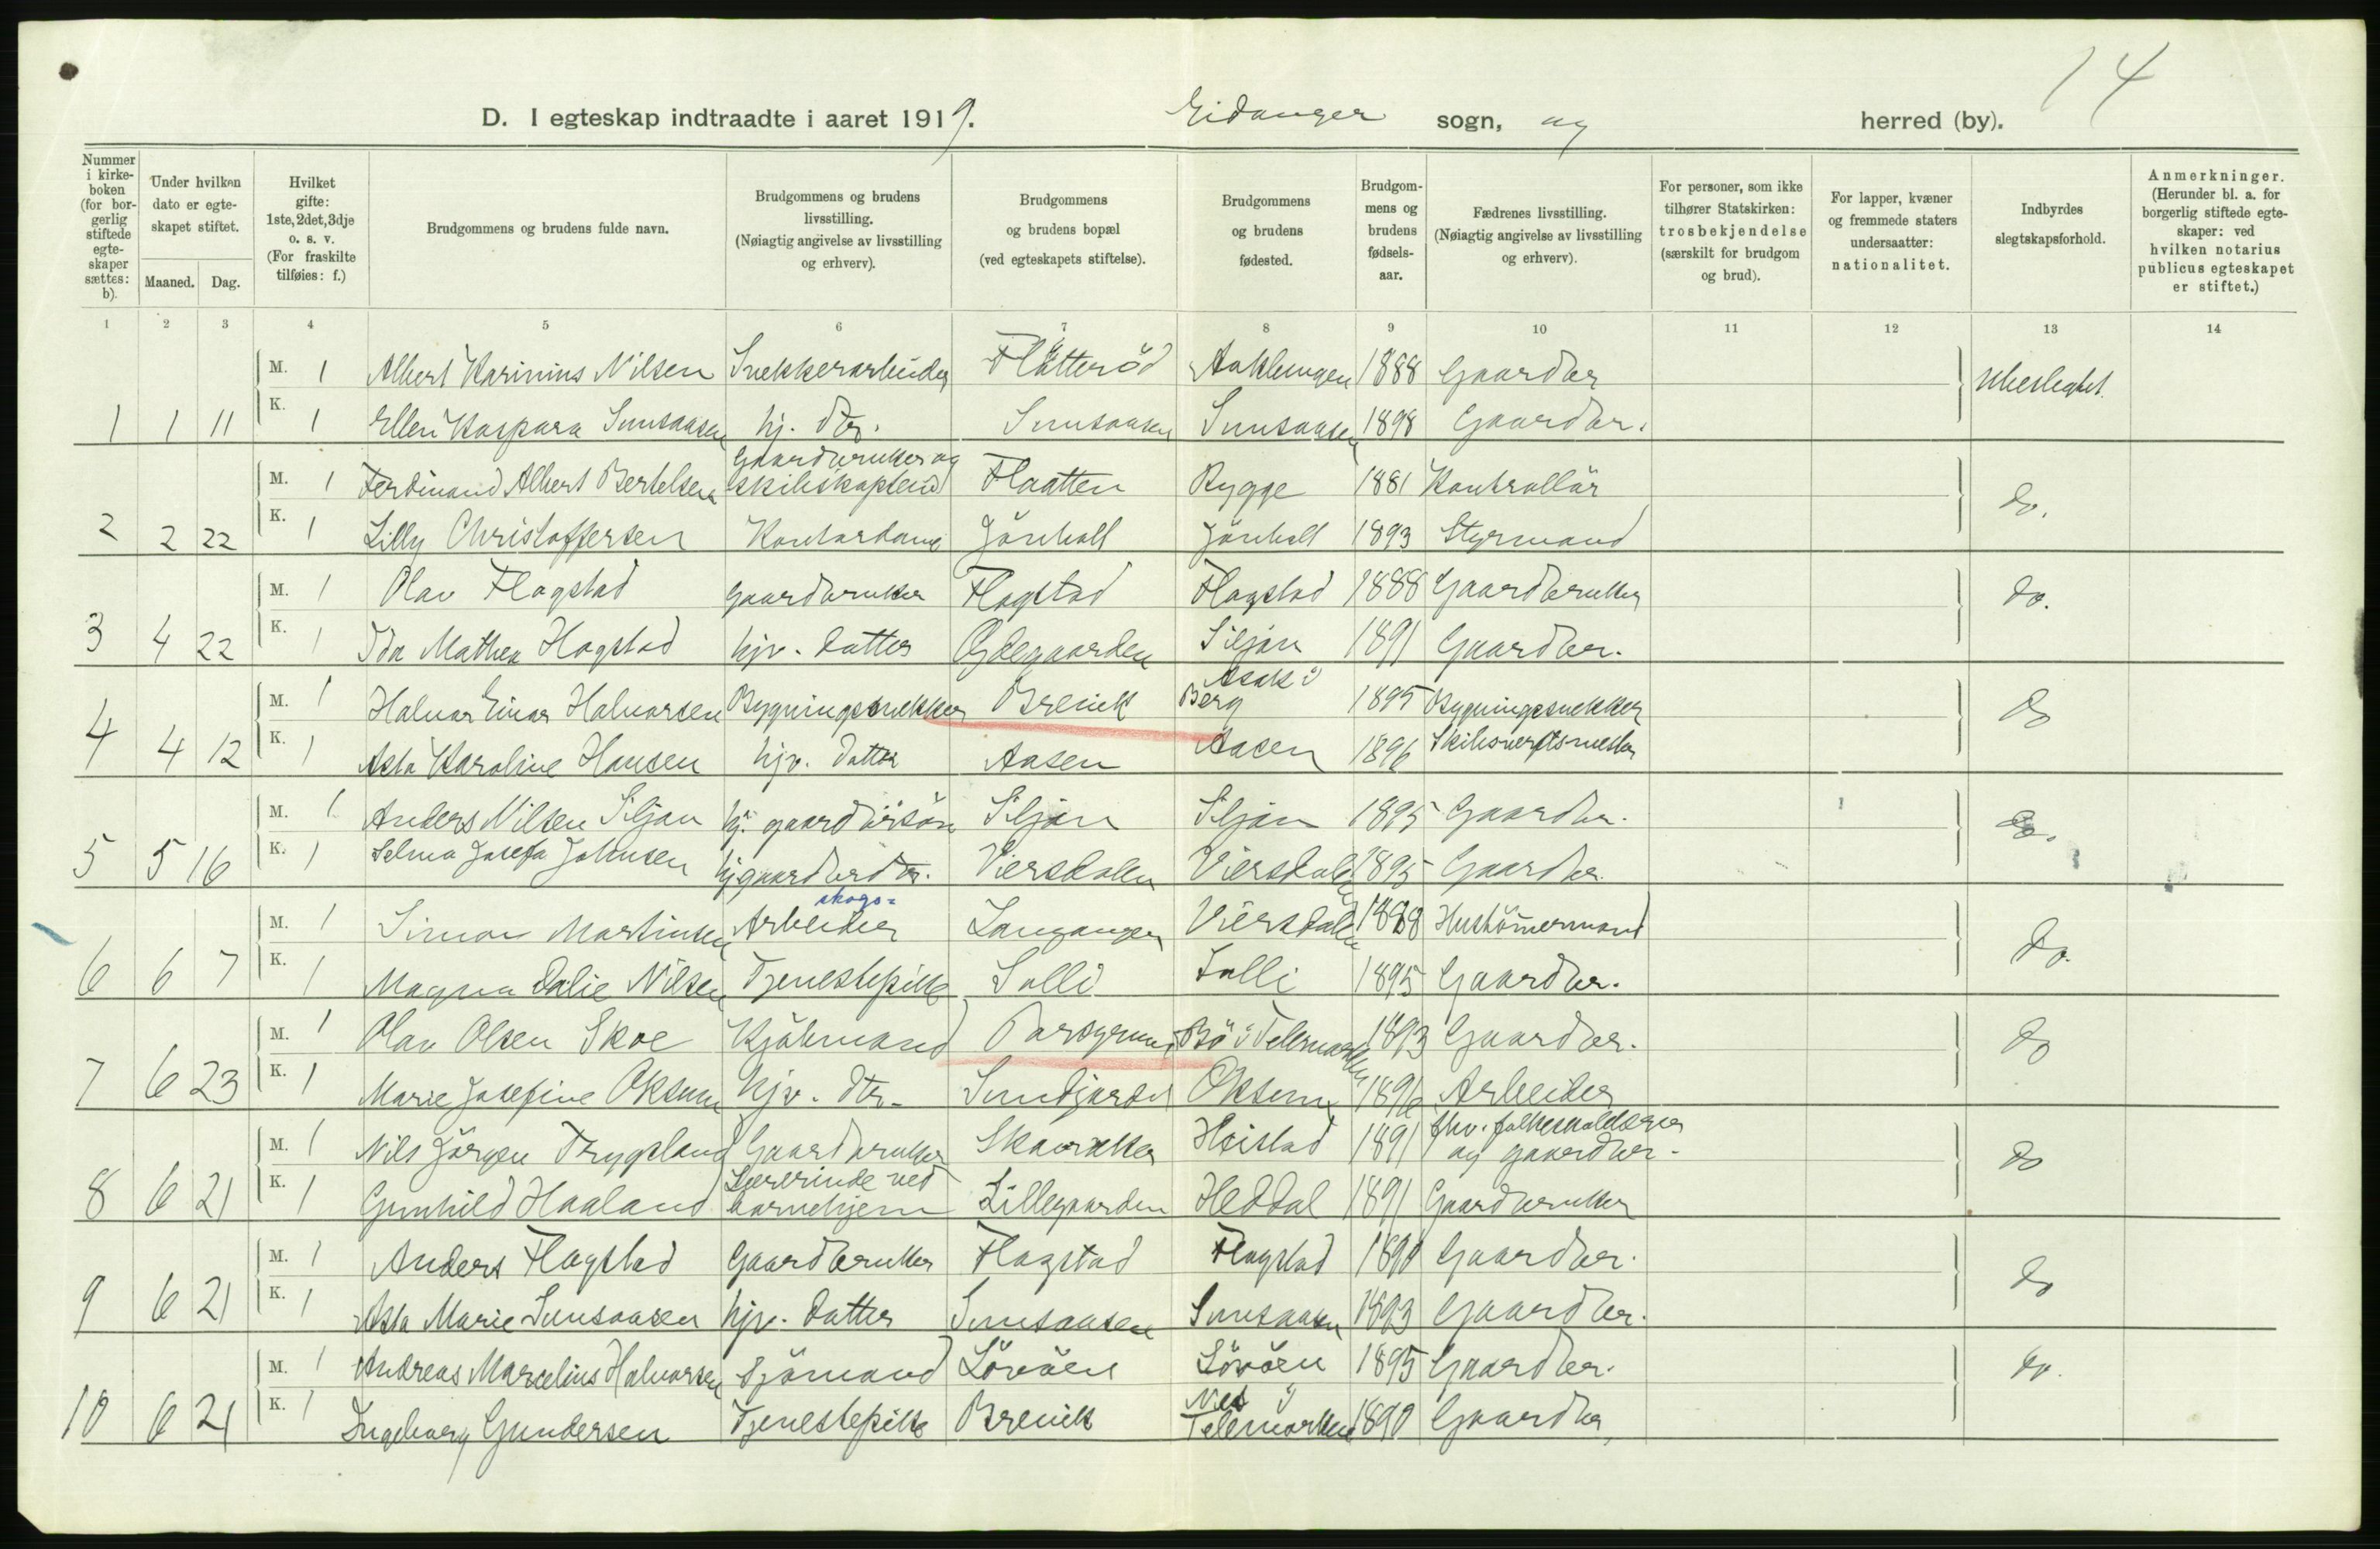 14
D. I egteskap indtraadte i aaret 1919. Eidanger sogn, og herred (by).
Nummer i kirkeboken (for borgerlig stiftede egteskaper sættes: b).
Under hvilken dato er egteskapet stiftet.
Maaned. Dag.
Hvilket gifte: 1ste, 2det, 3dje o. s. v. (For fraskilte tilføies: f.)
Brudgommens og brudens fulde navn.
Brudgommens og brudens livsstilling. (Nøiagtig angivelse av livsstilling og erhverv).
Brudgommens og brudens bopæl (ved egteskapets stiftelse).
Brudgommens og brudens fødested.
Brudgommens og brudens fødselsaar.
Fædrenes livsstilling. (Nøiagtig angivelse av livsstilling og erhverv).
For personer, som ikke tilhører Statskirken: trosbekjendelse (særskilt for brudgom og brud).
For lapper, kvæner og fremmede staters undersaatter: nationalitet.
Indbyrdes slegtskapsforhold.
Anmerkninger. (Herunder bl. a. for borgerlig stiftede egteskaper: ved hvilken notarius publicus egteskapet er stiftet.)
1 2 3 4 5 6 7 8 9 10 11 12 13 14
M. 1 Albert Karinius Nilsen Snekkerarbeider Flåtteröd Aaklungen 1888 Gaardbr Ubeslegtet.
1 1 11 K. 1 Ellen Kaspara Sunsaasen hj. dtr. Sunsaasen Sunsaasen 1898 Gaardbr.
M. 1 Ferdinand Albert Bertelsen Gaardbruker og skibskaptein Flaatten Rygge 1881 Kontrollör do.
2 2 22 K. 1 Lilly Christoffersen Kontordame Jönholt Jönholt 1893 Styrmand
M. 1 Olav Flagstad Gaardbruker Flagstad Flagstad 1888 Gaardbruker do.
3 4 22 K. 1 Ida Mathea Hogstad hjv. datter Ödegaarden Siljan 1891 Gaardbr.
M. 1 Halvor Einar Halvorsen Bygningssnekker Brevik Asak i Berg 1895 Bygningssnekker do
4 4 12 K. 1 Asta Karoline Hansen hjv. datter Aasen Aasen 1896 Skibsverftsmester
M. 1 Anders Nilsen Siljan hj. gaardbrsön Siljan Siljan 1895 Gaardbr. do.
5 5 16 K. 1 Selma Josefa Johnsen hj gaardbrdtr. Viersdalen Viersdalen 1895 Gaardbr.
M. 1 Simon Martinsen skogs= Arbeider Langangen Viersdalen 1888 Hustömmermand do.
6 6 7 K. 1 Magna Dalie Nilsen Tjenestepike Solli Solli 1895 Gaardbr.
M. 1 Olav Olsen Skoe Kjöbmand Porsgrund Bö i Telemarken 1893 Gaardbr. do
7 6 23 K. 1 Marie Josefine Oksum hjv. dtr. Sundjordet Oksum 1896 Arbeider
M. 1 Nils Jörgen Trygsland Gaardbruker Skavraker Heistad 1891 fhv. folkeskolelærer og gaardbr. do
8 6 21 K. 1 Gunhild Haaland Lærerinde ved barnehjem Lillegaarden Heddal 1891 Gaardbruker
M. 1 Anders Flagstad Gaardbruker Flagstad Flagstad 1890 Gaardbr. do
9 6 21 K. 1 Asta Marie Sunsaasen hjv. datter Sunsaasen Sunsaasen 1893 Gaardbr.
M. 1 Andreas Marcelius Halvorsen Sjömand Lövöen Lövöen 1895 Gaardbr. do.
10 6 21 K. 1 Ingeborg Gundersen Tjenestepike Brevik Telemarken 1890 Gaardbr